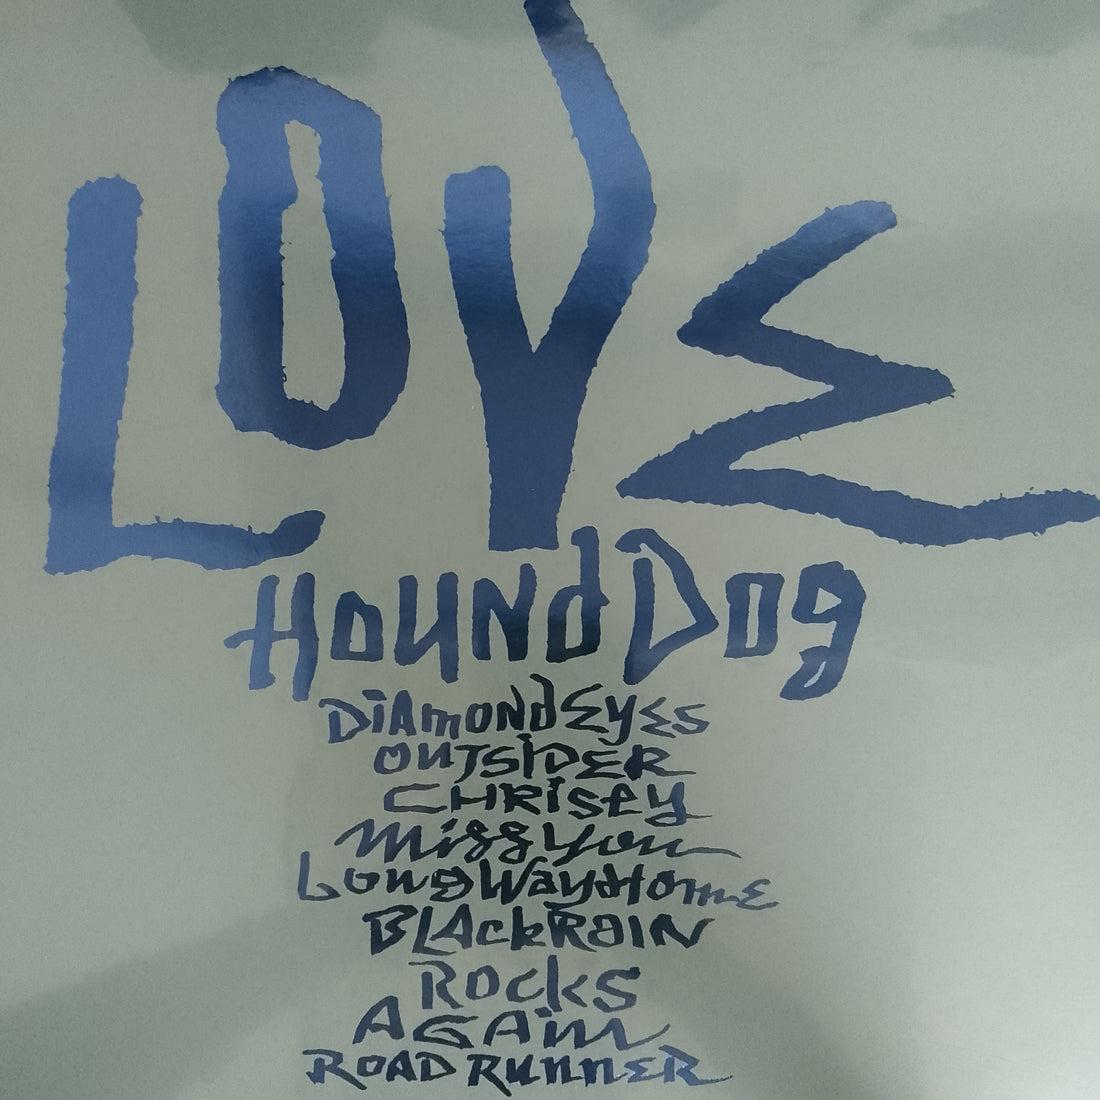 LOVE
HOUND DOG
DiAmond EyEs
OUTSiDER
CHRisey
Miss You
Long Way Home
BLAck RAIN
ROckS
AGAin
ROAD RUnnER